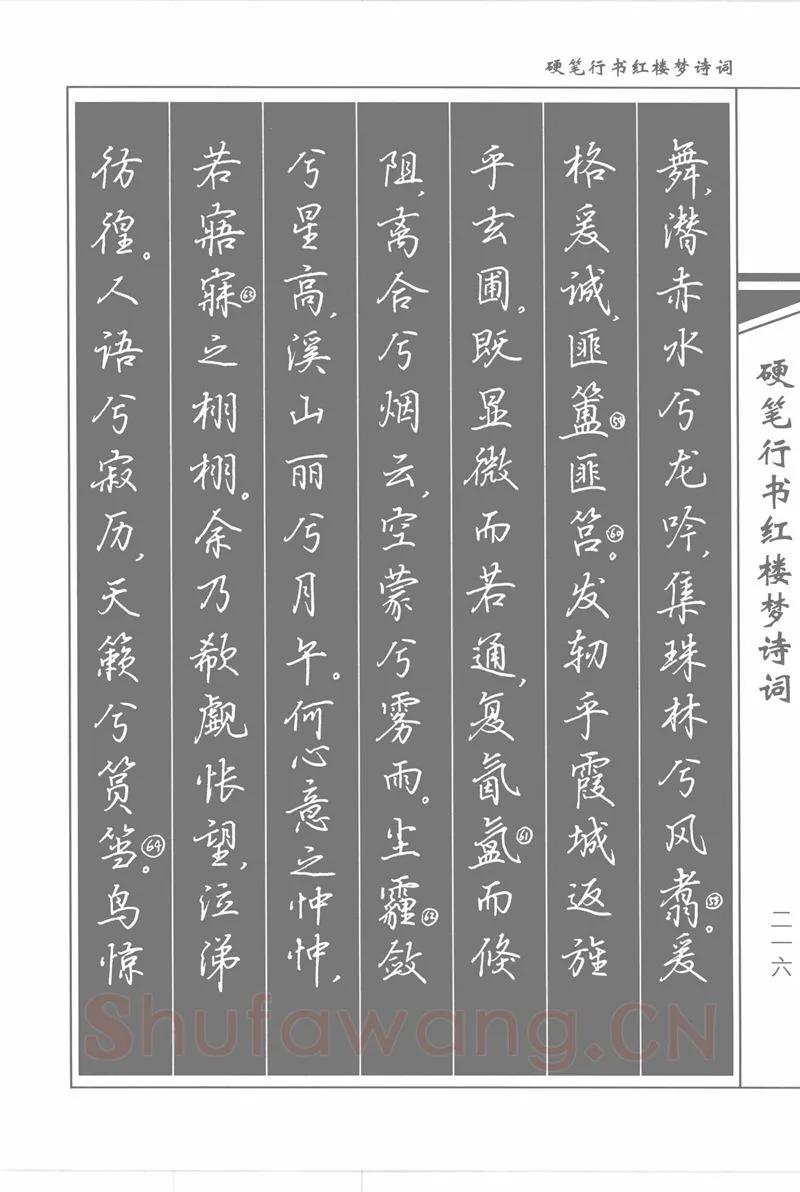 硬笔行书红楼梦诗词
舞，潜赤水兮龙吟，集珠林兮风翥㊽。爰
格爰诚，匪簠匪筥。发轫乎霞城返旌
乎玄圃。既显微而若通，复氤氲而倏
阻，离合兮烟云，空蒙兮雾雨。尘霾敛
兮星高，溪山丽兮月午。何心意之忡忡，
若寤寐之栩栩。余乃欷歔怅望，泣涕
彷徨。人语兮寂历，天籁兮筼筜。鸟惊
硬笔行书红楼梦诗词
二一六
Shufawang.CN